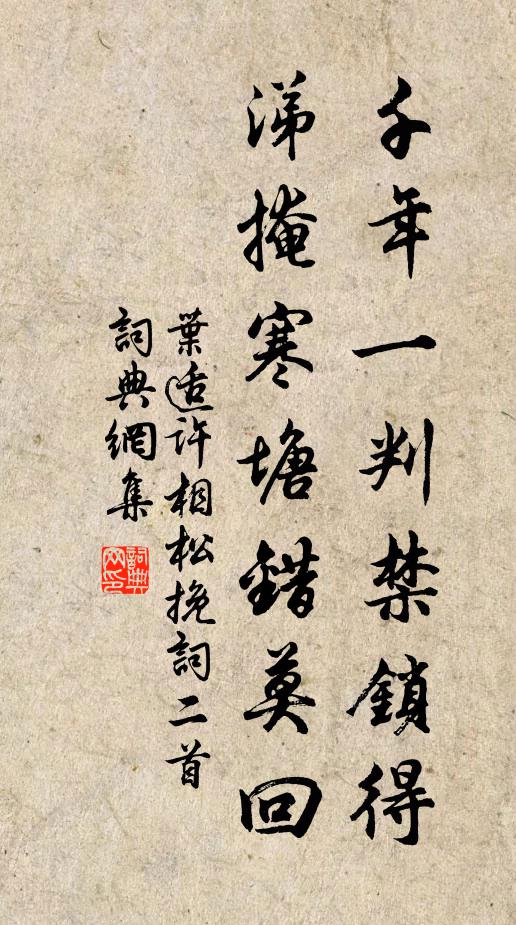 千年一判禁鎖得
涕掩寒塘錯莫回
葉適許相松挽詞二首
詞典網集
詞典網印